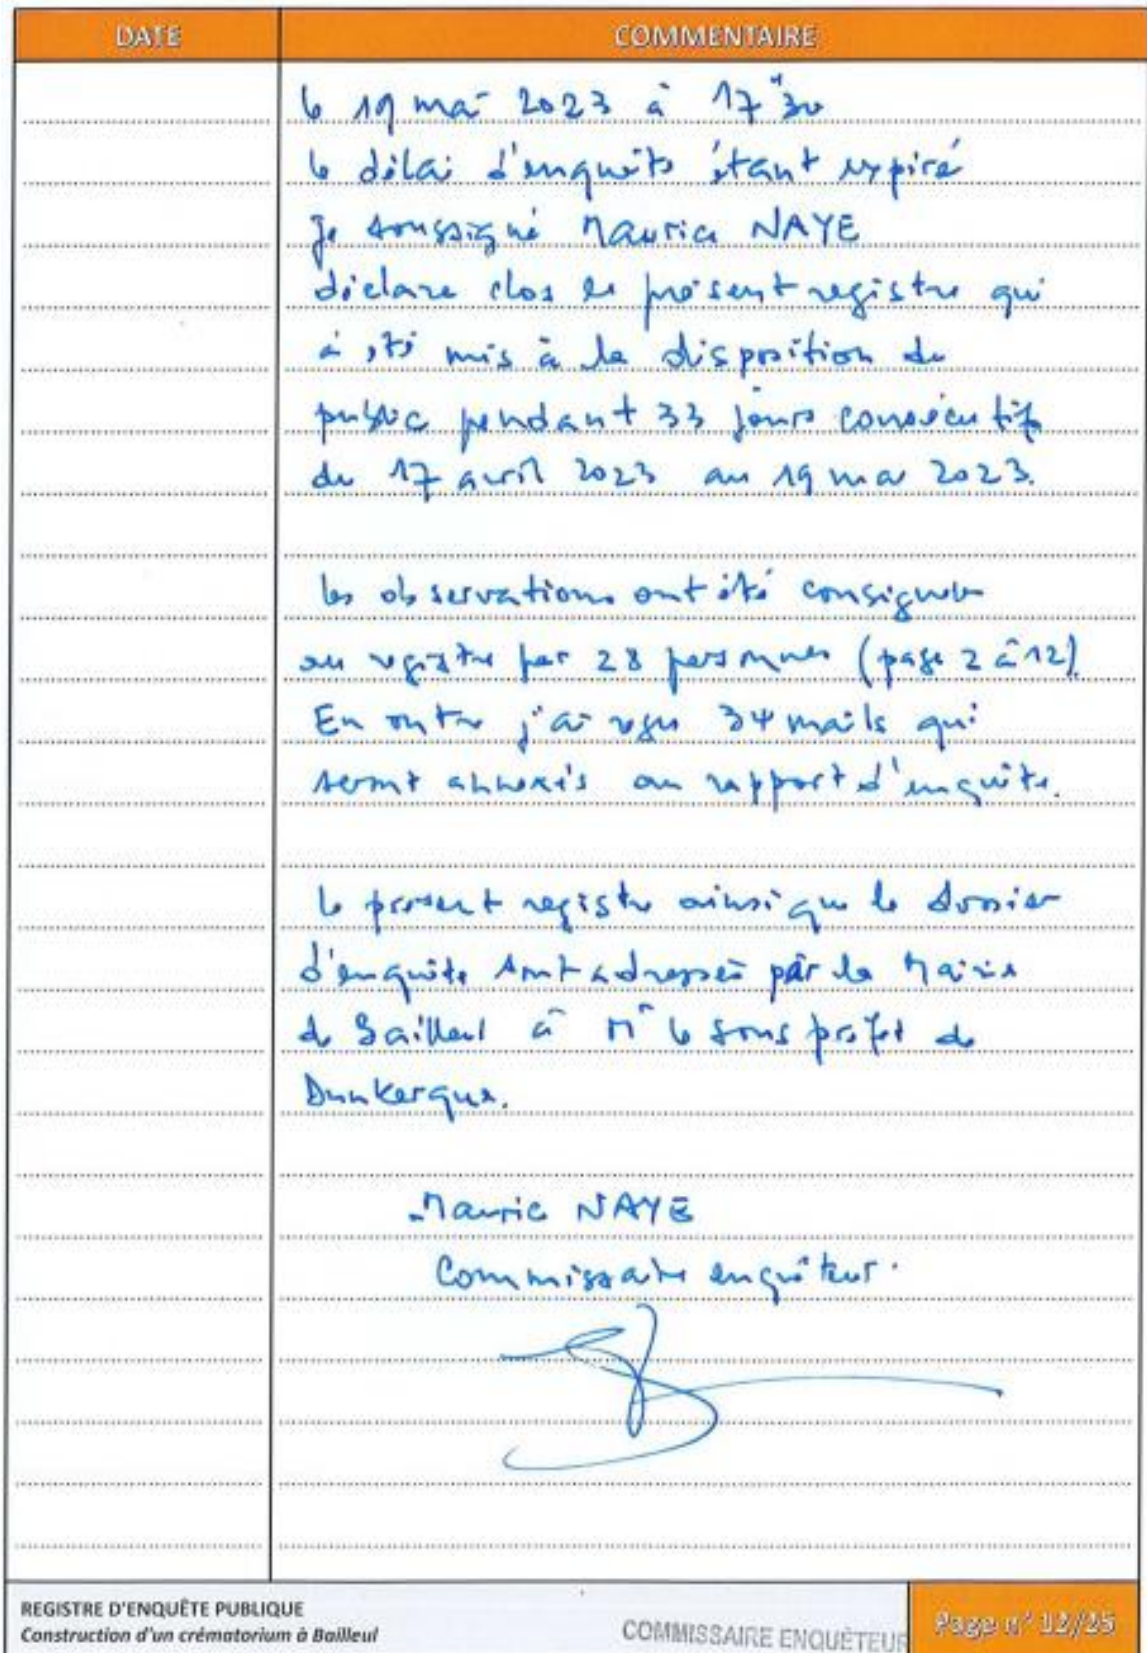 DATE COMMENTAIRE
le 19 mai 2023 à 17H30
le délai d'enquête étant expiré
Je soussigné Maurice NAYE
déclare clos le présent registre qui
à été mis à la disposition du
public pendant 33 jours consécutifs
du 17 avril 2023 au 19 mai 2023.
les observations ont été consignées
au registre par 28 personnes (page 2 à 12).
En outre j'ai reçu 34 mails qui
seront annexés au rapport d'enquête.
le présent registre ainsi que le dossier
d'enquête sont adressés par la Mairie
de Bailleul à Mr le sous préfet de
Dunkerque.
Maurice NAYE
Commissaire enquêteur.
REGISTRE D'ENQUÊTE PUBLIQUE
Construction d'un crématorium à Bailleul
COMMISSAIRE ENQUÊTEUR
Page n° 12/25